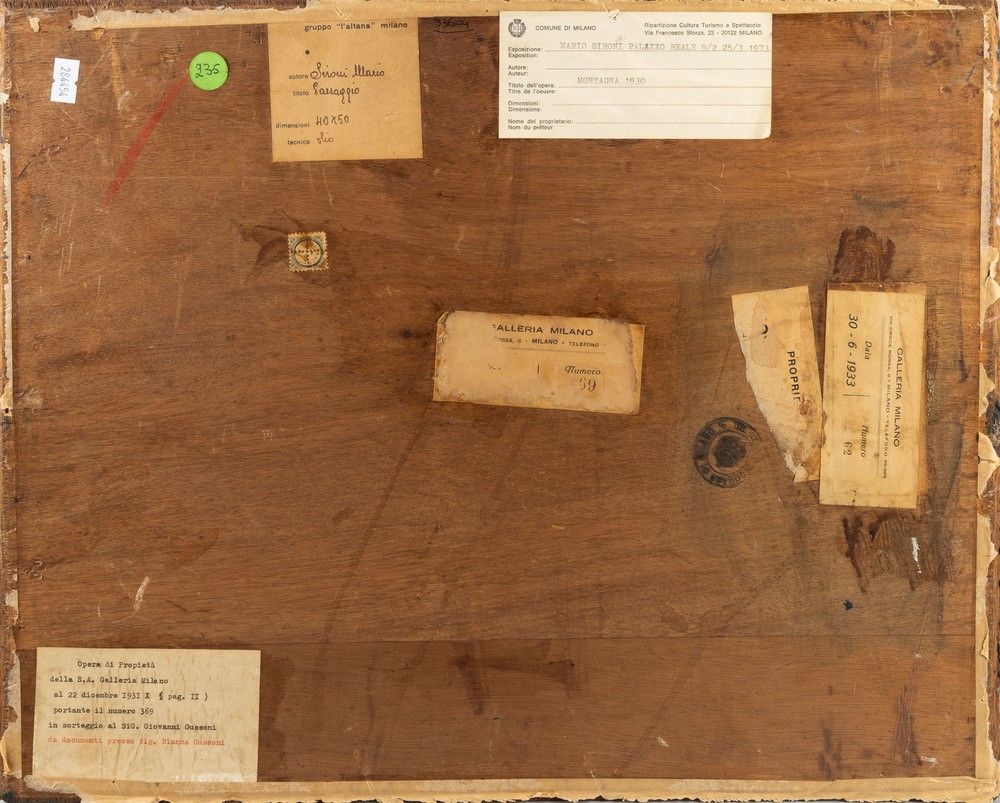 284454
235
gruppo "l'altana" milano
autore Sironi Mario
titolo Paesaggio
dimensioni 40x50
tecnica olio
COMUNE DI MILANO
Ripartizione Cultura Turismo e Spettacolo
Via Francesco Sforza, 23 - 20122 MILANO
Esposizione: MARIO SIRONI PALAZZO REALE 9/2 25/3 1973
Exposition:
Autore:
Auteur:
Titolo dell'opera: MONTAGNA 1930
Titre de l'oeuvre:
Dimensioni:
Dimensions:
Nome del proprietario:
Nom du prêteur:
ALLERIA MILANO
OSSA, 6 - MILANO - TELEFONO
Numero
69
PROPRIE
GALLERIA MILANO
VIA CROCE ROSSA, 6 - MILANO - TELEFONO
Data Numero
30-6-1933 62
Opera di Propietà
della S.A. Galleria Milano
al 22 dicembre 1931 X ( pag. II )
portante il numero 369
in sorteggio al SiG. Giovanni Gussoni
da documenti presso Sig. Bianca Gussoni